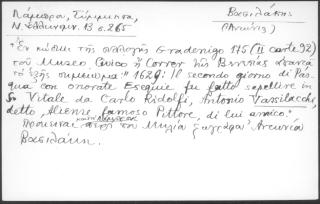 Λάμπρου, Σύμμικτα,
Ν. Ελληνομν. 13 σ. 265
Βασιλάκης
(Αντώνιος)
Ἐν κώδικι τῆς συλλογῆς Gradenigo 175 (II carte 92)
τοῦ Museo Civico ἢ Correr τῆς Βενετίας
τὸ ἑξῆς σημείωμα: "1629: Il secondo giorno di Pas-
qua con onorate Esequie fu fatto sepellire in
S. Vitale da Carlo Ridolfi, Antonio Vassilacchi,
detto Aliense famoso Pittore, di lui amico."
Πρόκειται περὶ τοῦ Μηλίου ζωγράφου Ἀντωνίου
Βασιλάκη.